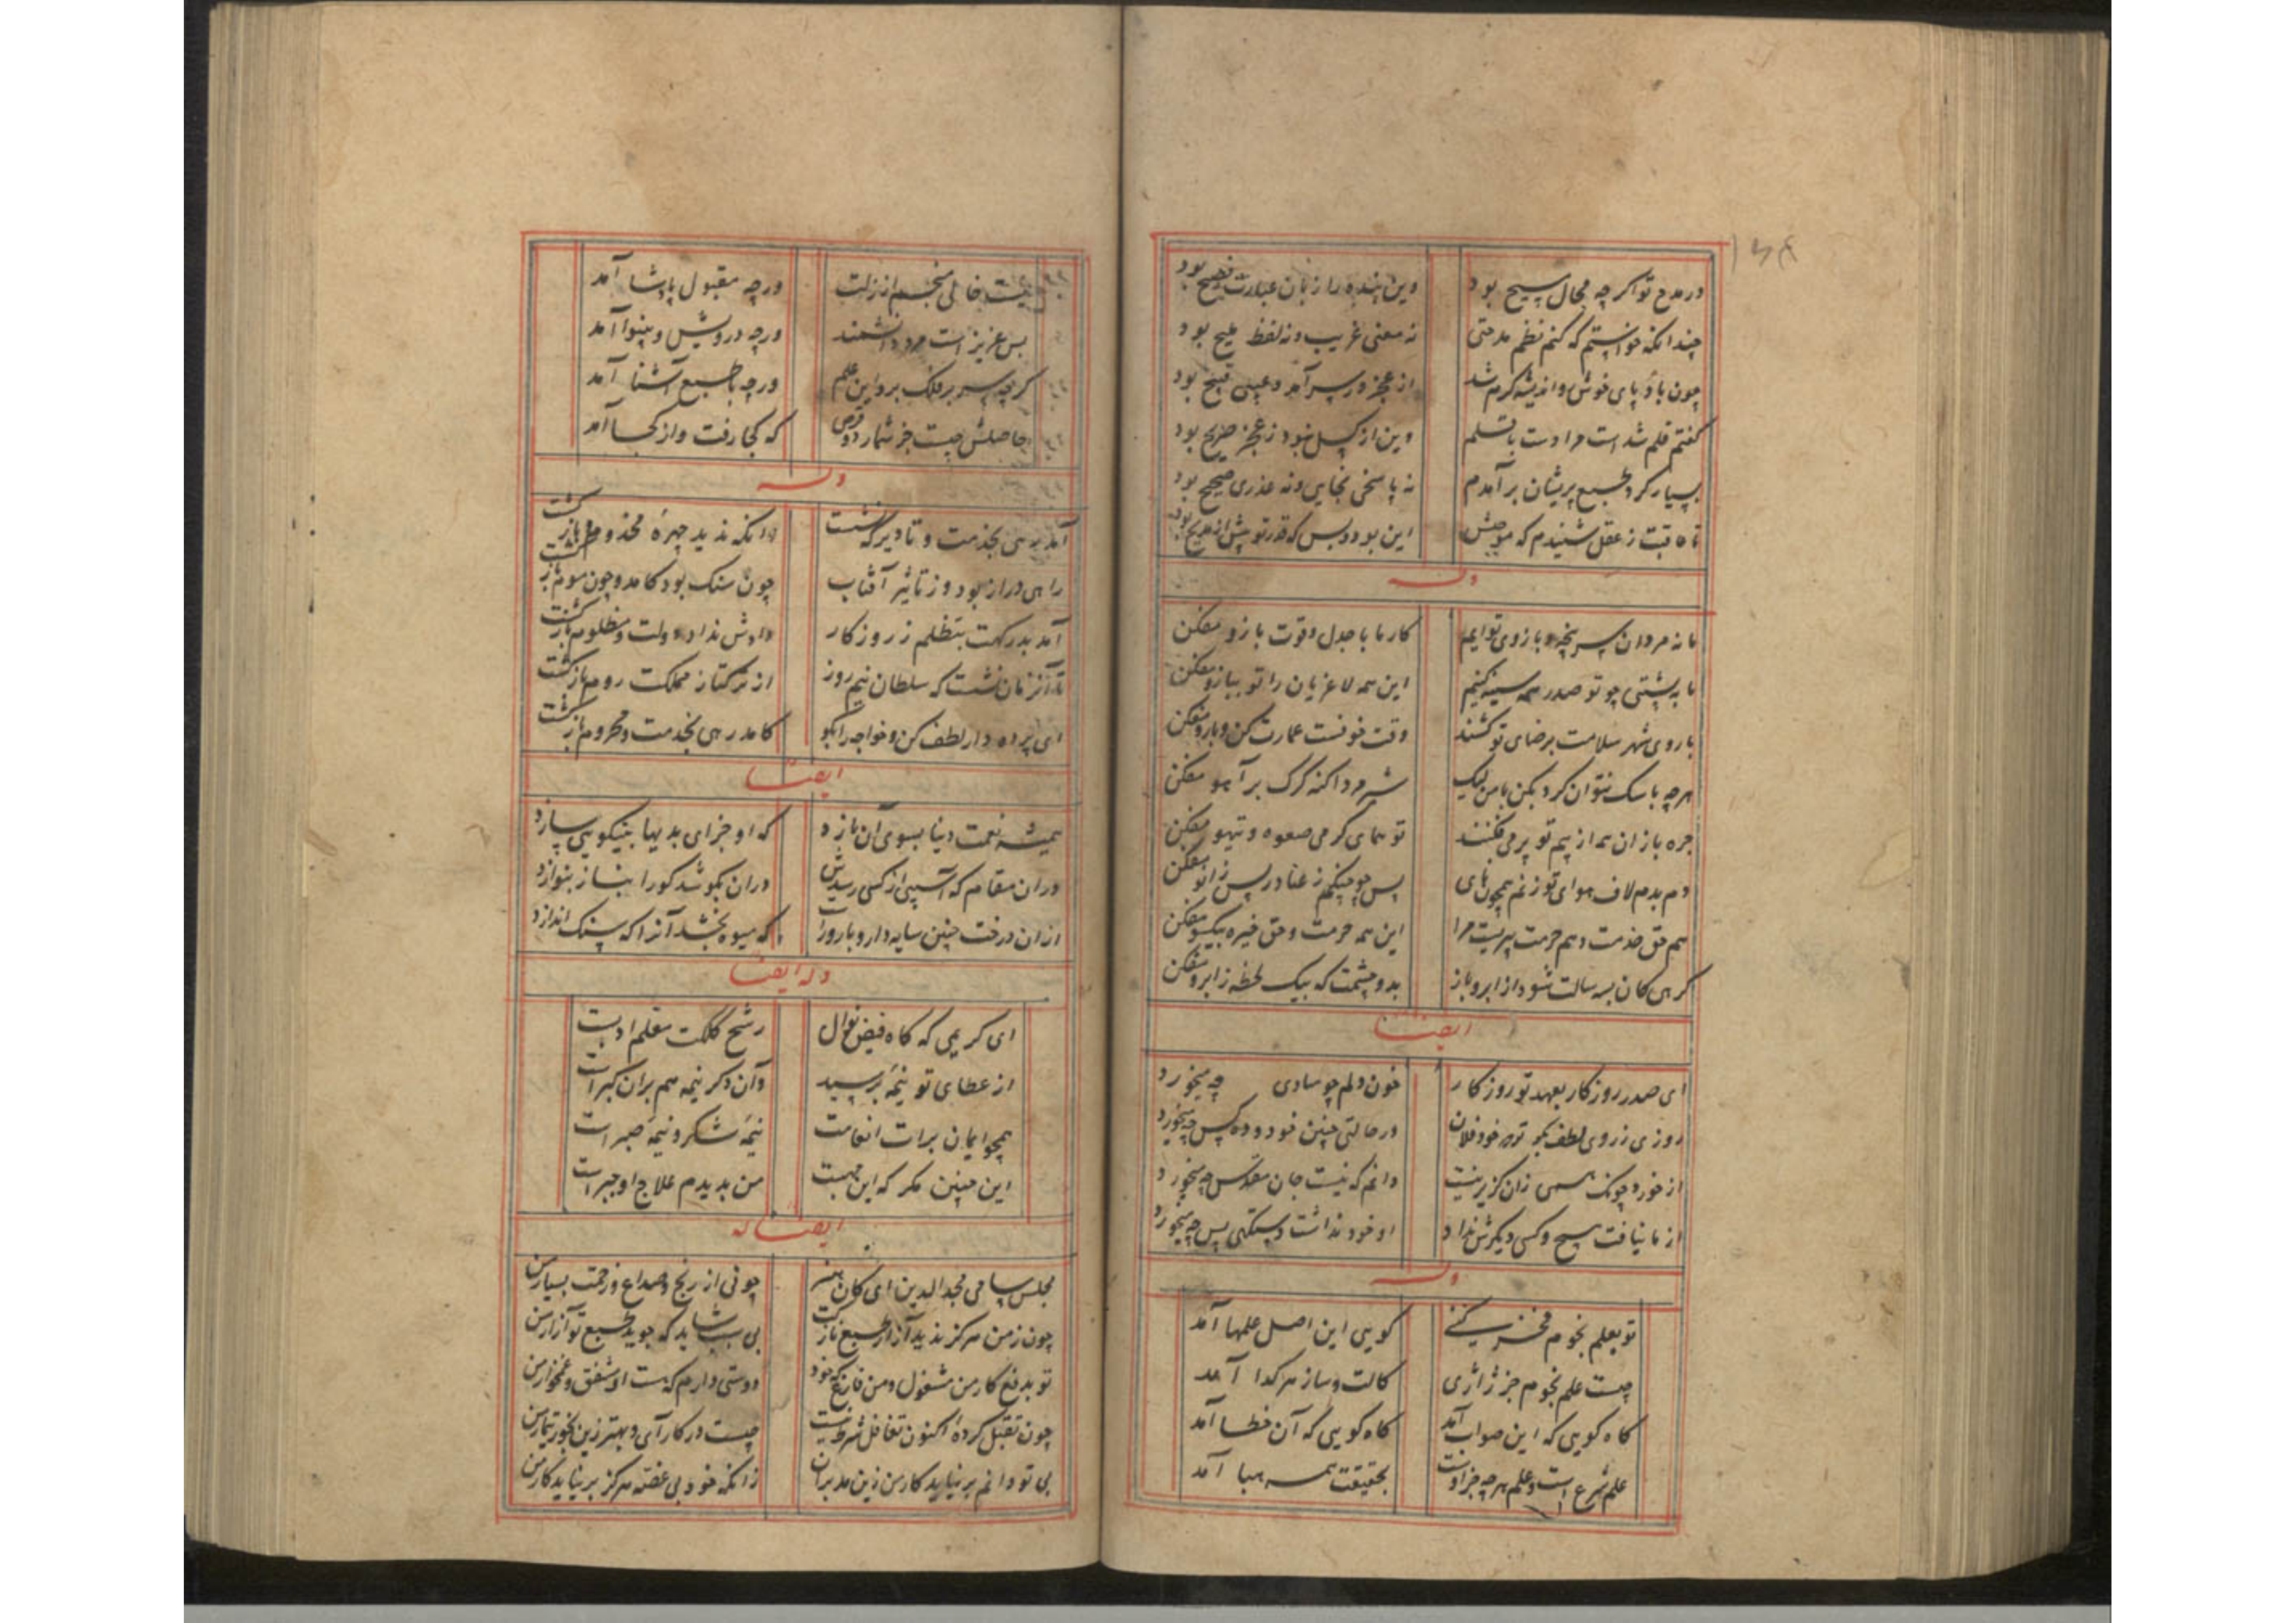 در مدح تو اگر چه مجال فسیح بود وین بنده را زبان عبارت فصیح بود
چندانکه خواستم که کنم نظم مدحتی نه معنی غریب و نه لفظ بود
چون باد پای خوش و اندیشه گرم شد از عجز در سر آمد و عیبی قبیح بود
گفتم قلم شد است مرا دست با قلم وین از کسل نبود ز عجز صریح بود
بسیار کرد طبع پریشان بر آمدم نه پاسخی بجایی و نه عذری صحیح بود
تا عاقبت ز عقل شنیدم که موجبش این بود و بس که قدر تو بیش از مدیح بود
وله
ما نه مردان سر پنجه و بازوی توایم کار ما با جدل و قوت بازو مفکن
ما به پشتی چو تو صدر همه سینه کنیم این همه لاغریان را تو مفکن
باروی شهر سلامت برضای تو کشند وقت خوفست عمارت کن و بارو مفکن
هرچه با سک نتوان کرد بکن با من لیک شیر مردا کنه کرک بر آهو مفکن
جره بازان همه از بیم تو پر می فکنند تو همای کرمی صعوه و تیهو مفکن
دم بدم لاف هوای تو زنم همچون نای پس چو چنگم ز عنا در پس زانو مفکن
هم حق خدمت و هم حرمت پیریست مرا این همه حرمت و حق خیره بیکسو مفکن
گرهی کان بسه سالت شود از ابرو باز بدو چشمت که بیک لحظه ز ابرو مفکن
ایضا
ای صدر روزکار بعهد تو روزکار خون دلم چو سادی چه میخورد
روزی ز روی لطف بکو خود فلان در حالتی چنین خود و ده کس چه میخورد
از خورد چونک همسی زان کزیر نیست دانم که نیست جان مقدس چه میخورد
از ما نیافت هیچ و کسی دیگرش نداد او خود نداشت دستکهی پس چه میخورد
وله
تو بعلم نجوم فخر کنی کویی این اصل علمها آمد
چیست علم نجوم جز ژاژی کالت و ساز هر کدا آمد
کاه کویی که این صواب آمد کاه کویی که آن خطا آمد
علم شرع است و علم هرچه جز اوست بحقیقت همه هبا آمد
نیست خالی منجم از زلت ورچه مقبول پادشا آمد
بس عزیز است مرد دانشمند ورچه درویش و بینوا آمد
کرچه سر بر فلک برد این علم ورچه با طبع آشنا آمد
حاصلش چیست جز شمار دو قرص که کجا رفت و از کجا آمد
وله
آمد رهی بخدمت و تا دیر که نشست وانکه ندید چهره مخدوم و باز کشت
راهی دراز بود و ز تاثیر آفتاب چون سنک بود کامد و چون موم باز کشت
آمد بدرکهت بتظلم ز روزکار دادش نداد دولت و مظلوم باز کشت
تا آنزمان نشست که سلطان نیم روز از ترکتاز مملکت روم باز کشت
ای پرده دار لطف کن و خواجه را بکو کامد رهی بخدمت و محروم باز کشت
ایضا
همیشه نعمت دنیا بسوی آن یازد که او جزای بدیها بنیکویی سازد
در آن مقام که آسیبی از کسی رسدش در آن بکوشد کو را بنواز بنوازد
از آن درخت چنین سایه دار و بارور است که میوه بخشد آنرا که سنک اندازد
وله ایضا
ای کریمی که کاه فیض نوال رشح کلکت مقلم ادبست
از عطای تو نیمه برسید وآن دکر نیمه هم بران کبر است
همچو ایمان برات انعامت نیمه شکر و نیمه صبر است
این چنین مکر که این من بدیدم علاج او جبر است
ایضا له
مجلس سامی مجد الدین ای کان هنر چونی از رنج و صداع و زحمت بسیار من
چون ز من هرکز ندید آزار طبع نازکت بی سبب شاید که جوید طبع تو آزار من
تو بدفع کار من مشغول و من فارغ که خود دوستی دارم که هست او مشفق و غمخوار من
چون تقبل کرده اکنون تغافل شرط نیست چست در کار آی و بهتر زین بخور تیمار من
بی تو دانم بر نیاید کار من زین مدبران زانکه خود بی غصه هرکز بر نیاید کار من